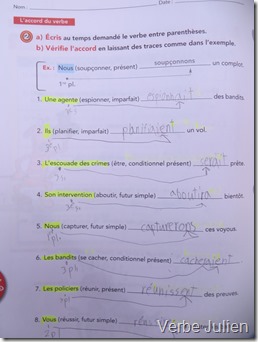 Nom : Date :
L'accord du verbe
2 a) Écris au temps demandé le verbe entre parenthèses.
b) Vérifie l'accord en laissant des traces comme dans l'exemple.
Ex. : Nous (soupçonner, présent) soupçonnons un complot.
1re pl.
1. Une agente (espionner, imparfait) espionnait des bandits.
2. Ils (planifier, imparfait) planifiaient un vol.
3. L'escouade des crimes (être, conditionnel présent) serait prête.
4. Son intervention (aboutir, futur simple) aboutira bientôt.
5. Nous (capturer, futur simple) capturerons ces voyous.
6. Les bandits (se cacher, conditionnel présent) cacheraient
7. Les policiers (réunir, présent) réunissent des preuves.
8. Vous (réussir, futur simple)
Verbe Julien